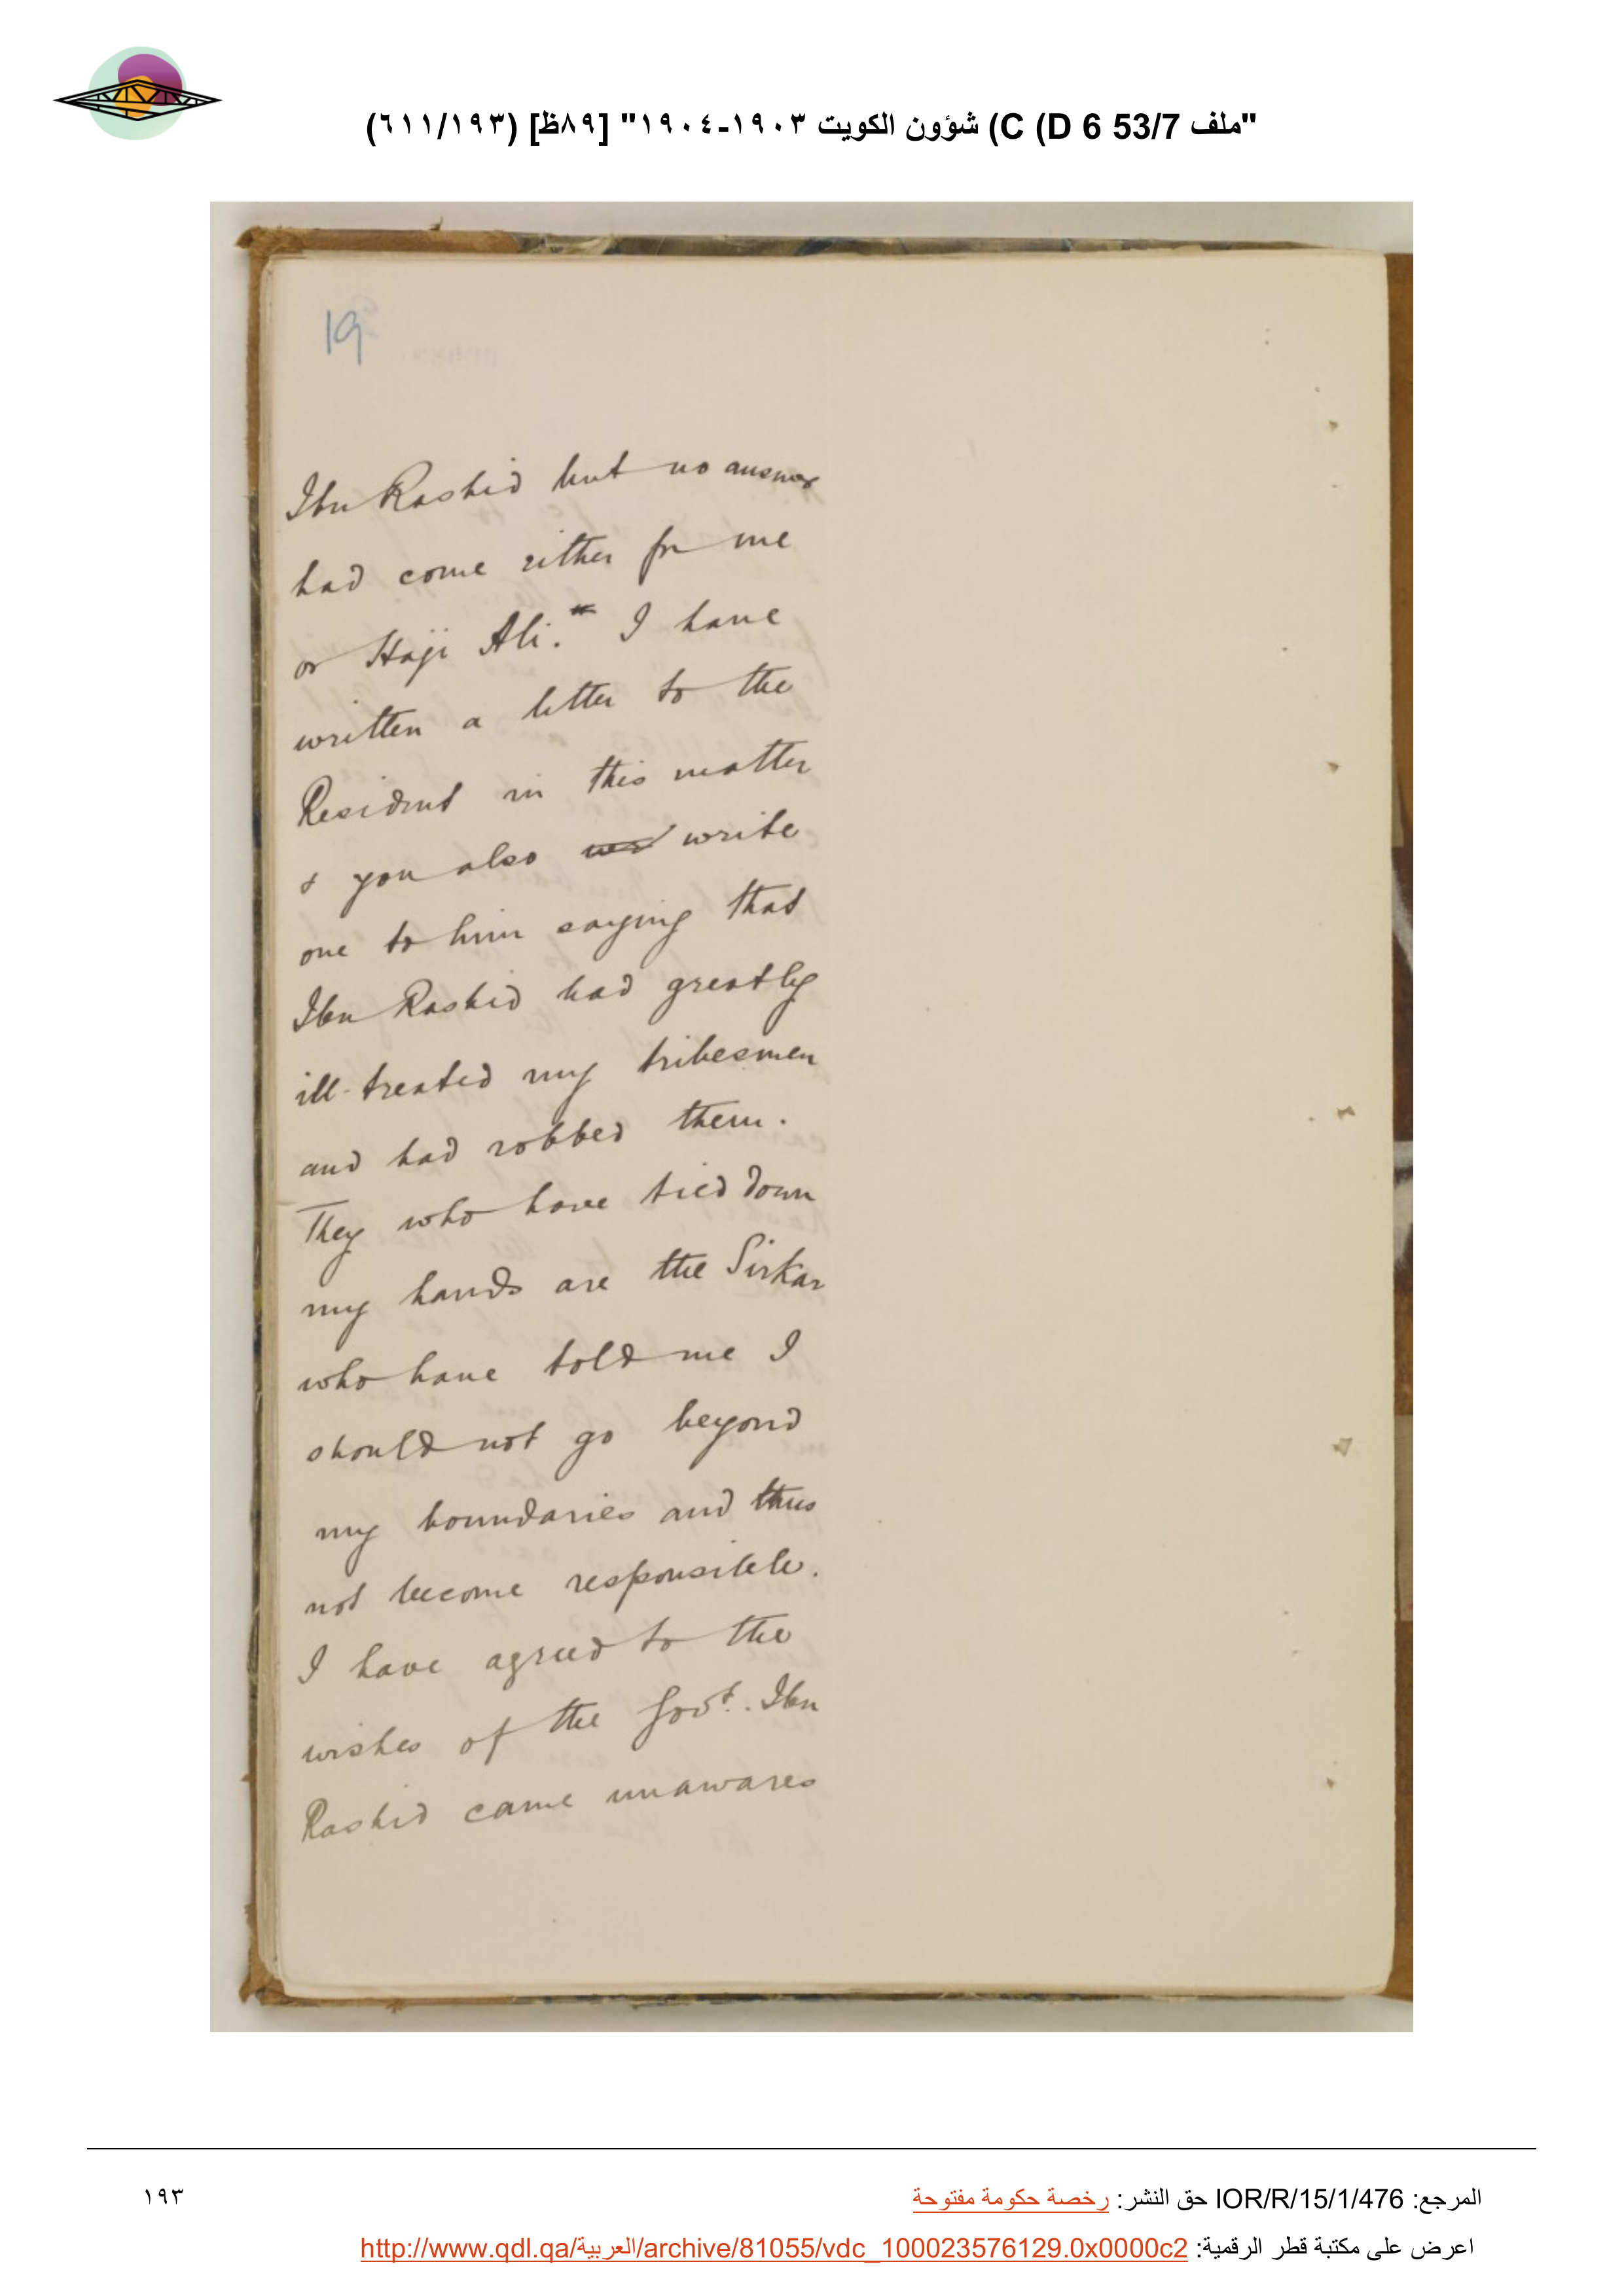 "ملف 53/7 D 6) C) شؤون الكويت ١٩٠٣-١٩٠٤" [٨٩ظ] (٦١١/١٩٣)
19
Ibn Rashid but no answer
had come either for me
or Haji Ali." I have
written a letter to the
Resident in this matter
& you also write
one to him saying that
Ibn Rashid had greatly
ill-treated my tribesmen
and had robbed them.
They who have tied down
my hands are the Sirkar
who have told me I
should not go beyond
my boundaries and thus
not become responsible.
I have agreed to the
wishes of the Govt. Ibn
Rashid came unawares
المرجع: IOR/R/15/1/476 حق النشر: رخصة حكومة مفتوحة
١٩٣
اعرض على مكتبة قطر الرقمية: http://www.qdl.qa/العربية/archive/81055/vdc_100023576129.0x0000c2